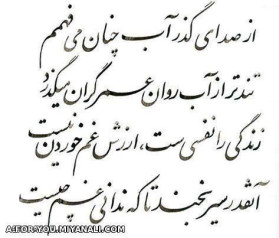 از صدای گذر آب چنان می فهمم
تندتر از آب روان عمر گران میگذرد
زندگی را نفسی ست، ارزش غم خوردن نیست
آنقدر سیر بخند تا که ندانی غم چیست
A4FOR4YOU.MIYANALI.COM